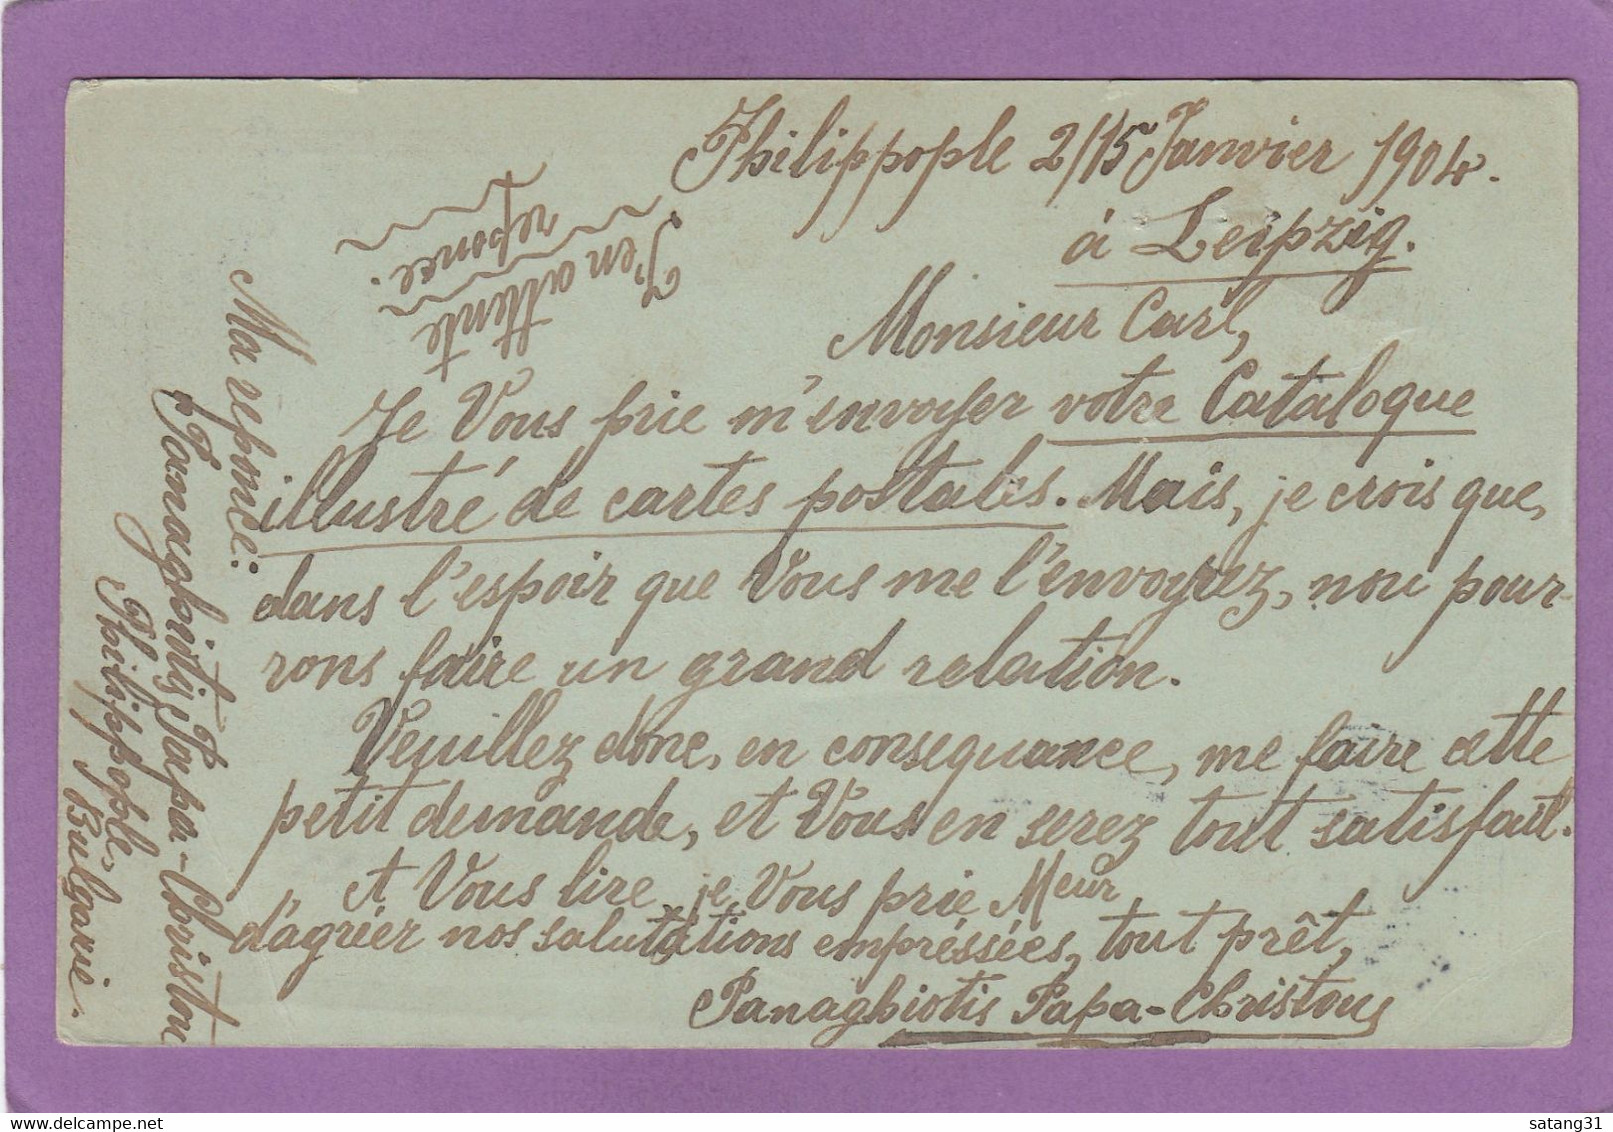 Philippople 2/15 Janvier 1904.
à Leipzig.
Monsieur Carl,
Je Vous prie m'envoyer votre Catalogue
illustré de cartes postales. Mais, je crois que,
dans l'espoir que Vous me l'envoyrez, nou pour-
rons faire un grand relation.
Veuillez donc, en consequance, me faire cette
petit demande, et Vous en serez tout satisfait.
A Vous lire, je Vous prie Meur
d'agréer nos salutations empréssées, tout prêt,
Panaghiotis Papa-Christou
J'en attente
reponce.
Ma reponce:
Panaghiotis Papa-Christou
Philippople,
Bulgarie.
satang31